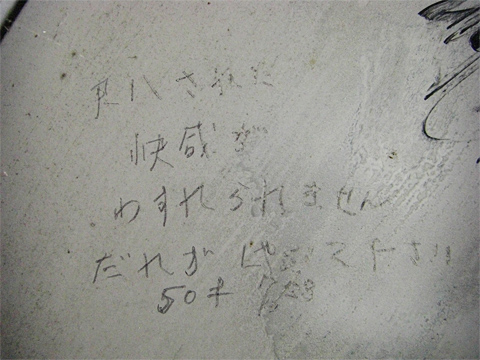 尺八された
快感が
わすれられません
だれが 下さい
50才